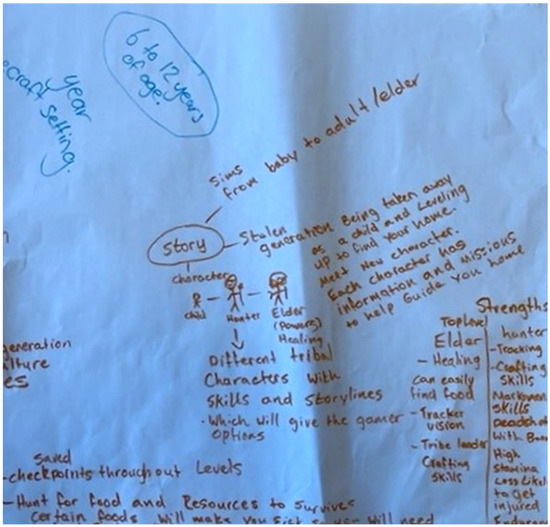 6 to 12 years
of age.
year
craft setting.
sims
from baby to adult/elder
story
Stolen
generation Being taken away
as a child and leveling
up to find your home.
Meet New character.
Each character has
information and Missions
to help Guide you home
character
child
Hunter
Elder
(Powers)
Healing
Different tribal
Characters with
Skills and Storylines
- Which will give the gamer
options
Strengths
Top Level
Elder
- Healing
can easily
find food
- Tracker
vision
- Tribe leader
Crafting
Skills
hunter
- Tracking
- Crafting
skills
Marksman
skills
deadshot
With Bow
High
Stamina
Less likel
to get
injured
generation
ulture
es
saved
- checkpoints throughout Levels
- Hunt for food and Resources to Survives
Certain foods will make you Sick so you will need